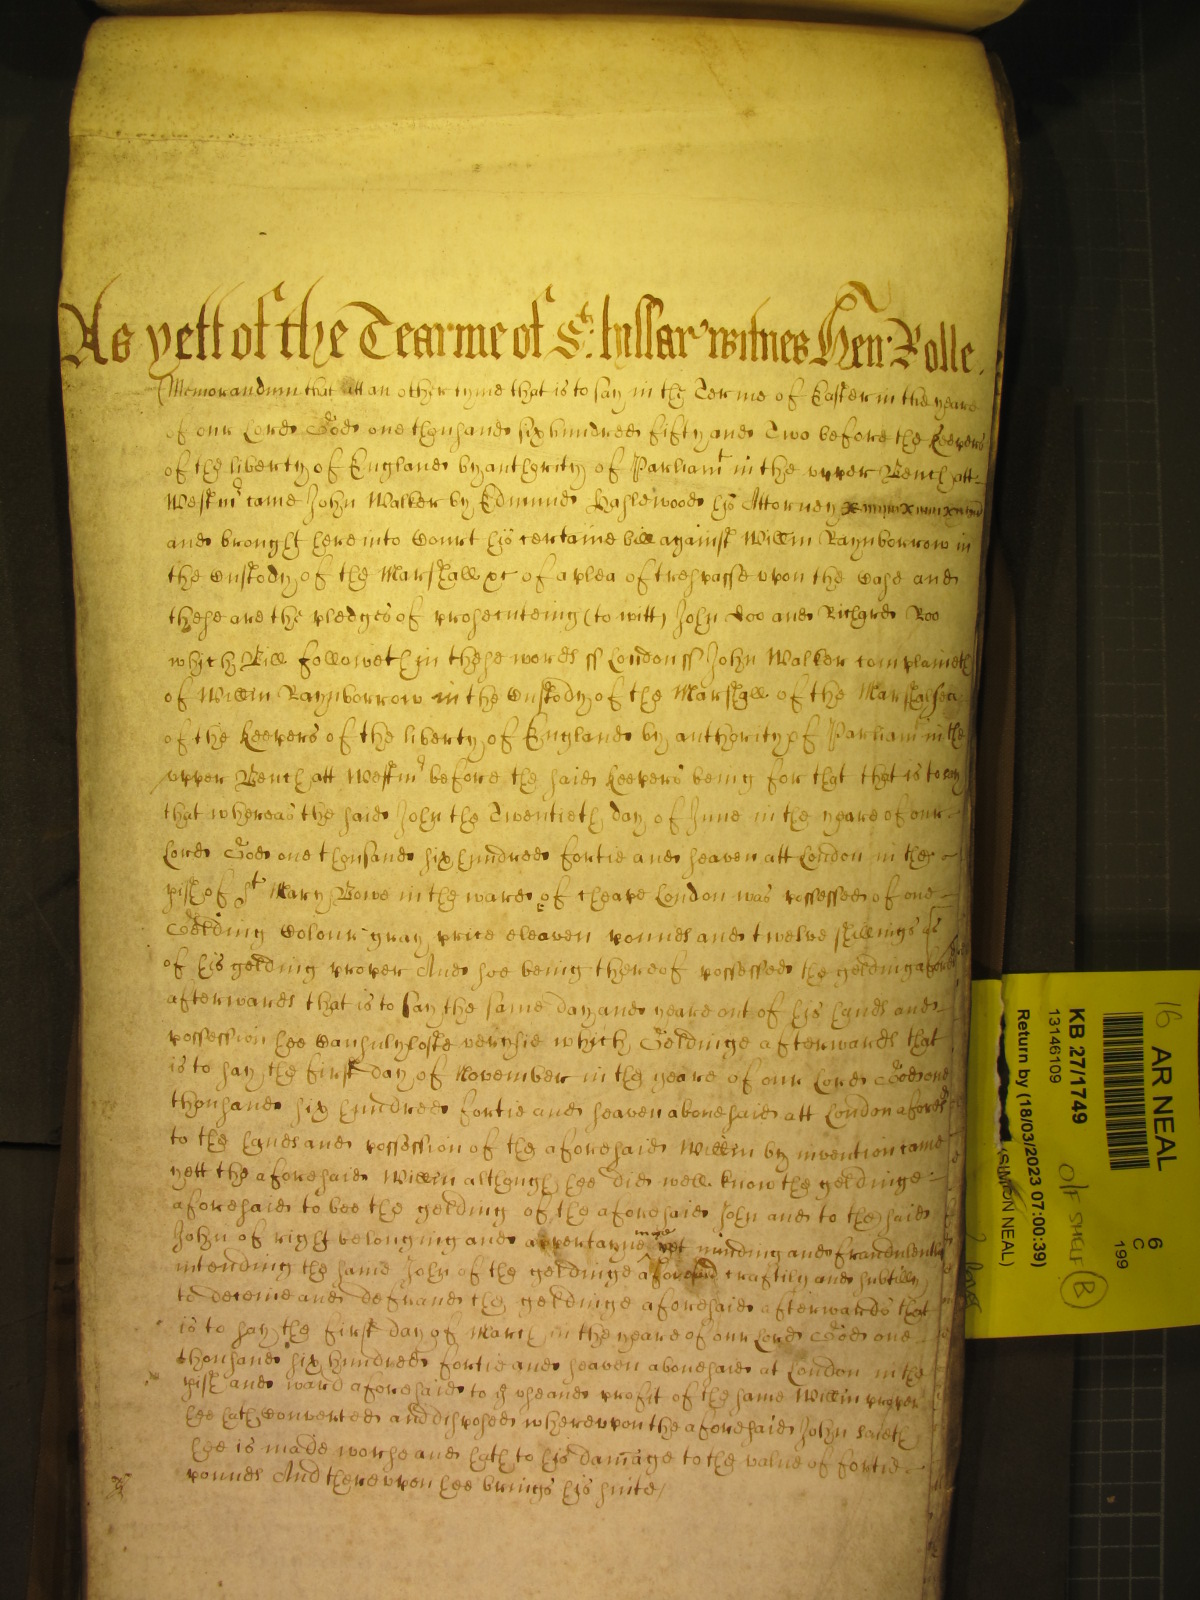 As yett of the Tearme of St. hillar' witnes Hen: Rolle.
Memorandum that att an other tyme that is to say in the Terme of Easter in the yeare
of our Lord God one thousand six hundred fifty and Two before the Keepers
of the liberty of England by authority of Parliamt in the upper Bench att
Westmr came John Walker by Edmund Haslewood his Attorney
and brought here into Court his certaine bill against Willm Raynborrow in
the Custody of the Marshall &c of a plea of trespasse upon the Case and
these are the pledges of prosecuteing (to witt) John Doo and Richard Roo
which Bill followeth in these words ss London ss John Walker complaineth
of Willm Raynborrow in the Custody of the Marshall of the Marshalsea
of the Keepers of the liberty of England by authority of Parliamt in the
upper Bench att Westmr before the said Keepers being for that that is to say
that whereas the said John the Twentieth day of June in the yeare of our
Lord God one thousand six hundred fortie and seaven att London in the
pish of St Mary Bowe in the ward of Cheape London was possessed of one
Gelding Colour gray price eleaven pounds and twelve shillings as
of his gelding proper And soe being thereof possessed the gelding afores
afterwards that is to say the same day and yeare out of his hands and
possession hee Casually loste which Geldinge afterwards that
is to say the first day of November in the yeare of our Lord God one
thousand six hundred fortie and seaven abovesaid att London afores
to the hands and possession of the aforesaid Willm by invention came
yett the aforesaid Willm although hee did well know the geldinge
aforesaid to bee the gelding of the aforesaid John and to the said
John of right belonging and appertayneinge yet minding and fraudulently
intending the same John of the geldinge aforesaid craftily and subtilly
to deceive and defraud the geldinge aforesaid afterwards that
is to say the first day of March in the yeare of our Lord God one
thousand six hundred fortie and seaven abovesaid at London in the
pish and ward aforesaid to ye use and profit of the same Willm proper
hee hath Converted and disposed whereupon the aforesaid John saieth
hee is made worse and hath to his damage to the value of fortie
pounds And thereupon hee brings his suite
16 AR NEAL
6
C
199
KB 27/1749
13146109
O/F SHELF B
Return by (18/03/2023 07:00:39)
(SIMON NEAL)